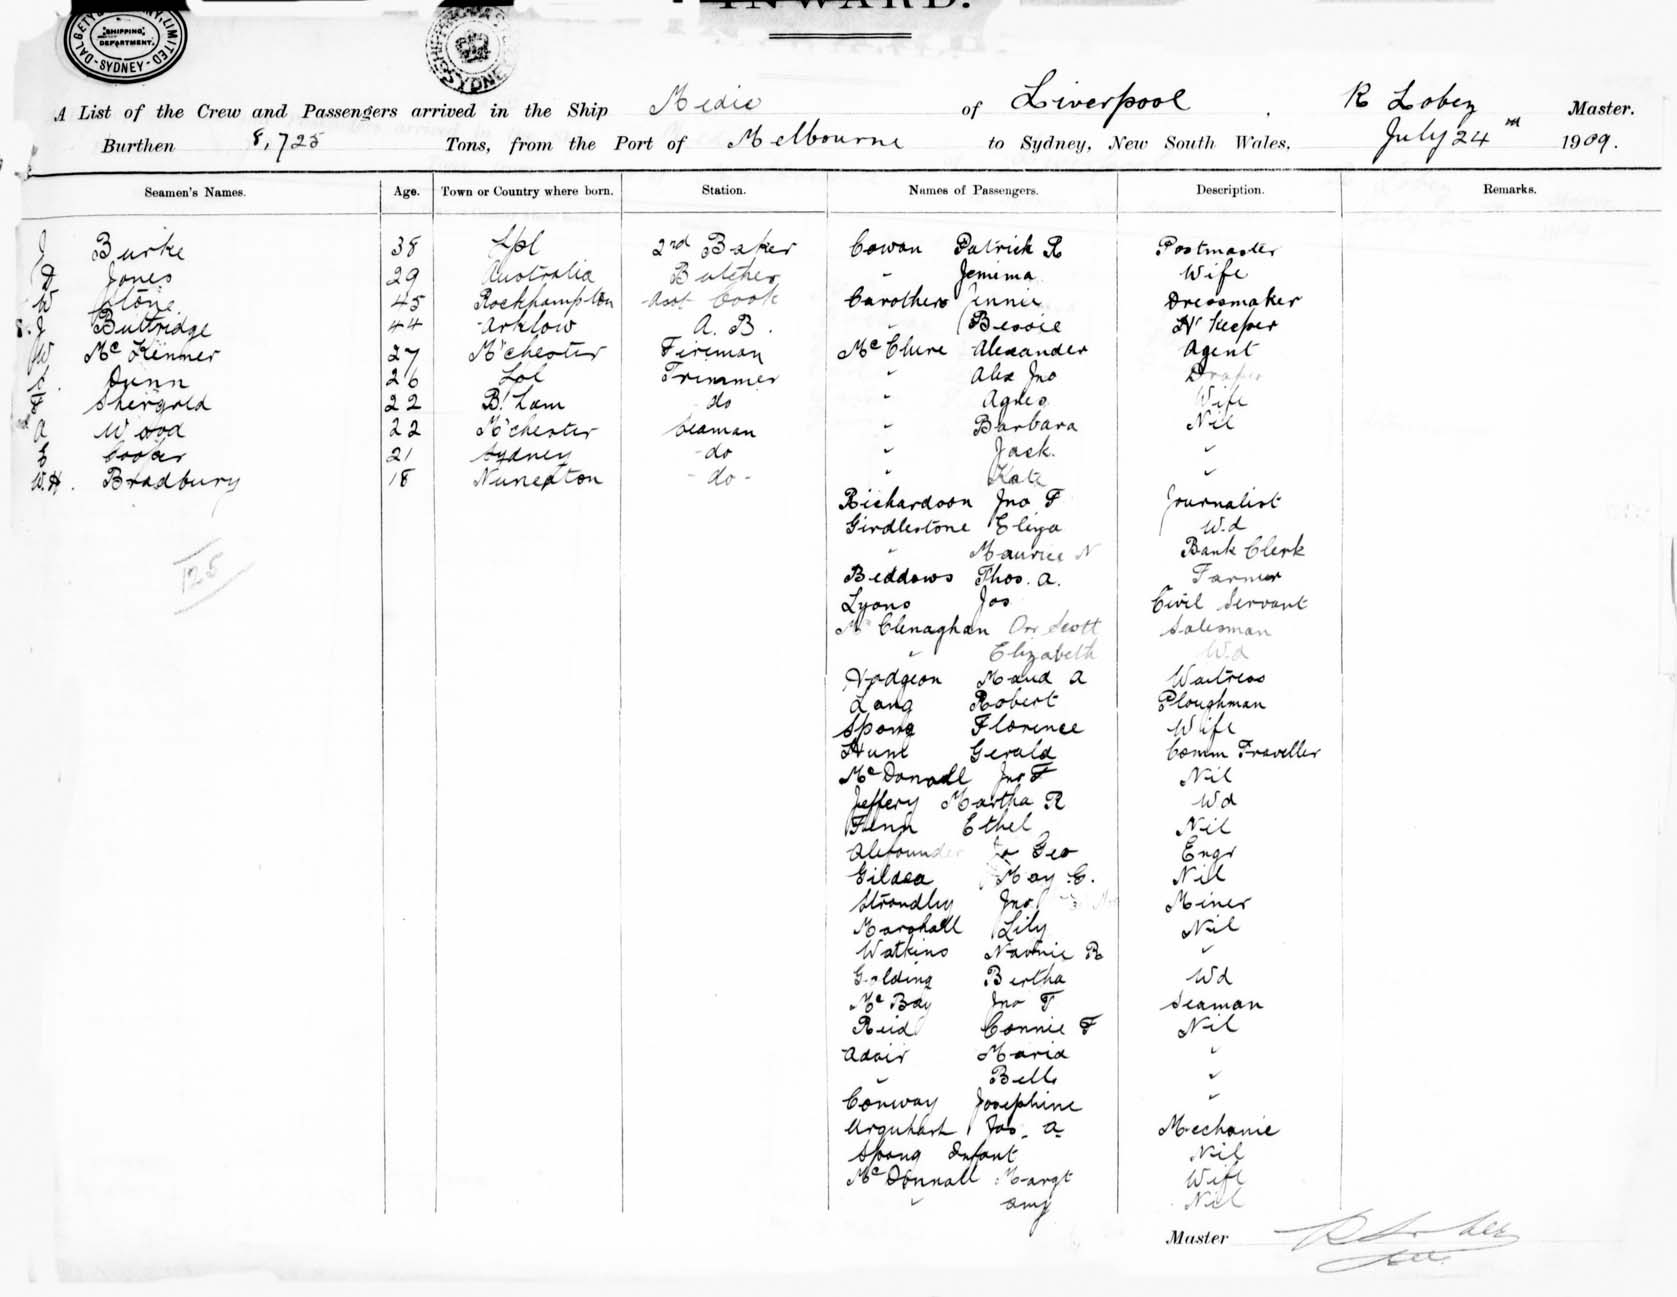 INWARD.
DALGETY & COMPANY, LIMITED
SHIPPING DEPARTMENT.
SYDNEY
A List of the Crew and Passengers arrived in the Ship Medic of Liverpool R Lobez Master.
Burthen 8,725 Tons, from the Port of Melbourne to Sydney, New South Wales, July 24 1909.
Seamen's Names. Age. Town or Country where born. Station. Names of Passengers. Description. Remarks.
J Burke 38 Lpl 2nd Baker Cowan Patrick R Postmaster
D Jones 29 Australia Butcher " Jemima Wife
W Stone 45 Rockhampton Asst Cook Carothers Annie Dressmaker
J Buttridge 44 Arklow A. B. " Bessie H Keeper
W McKinmer 27 M'chester Fireman McClure Alexander Agent
Dunn 26 Lpl Trimmer " Alex Jno Draper
Shergold 22 B'ham do " Agnes Wife
A Wood 22 M'chester Seaman " Barbara Nil
Cooper 21 Sydney do " Jack. "
W.H. Bradbury 18 Nuneaton - do - " Kate "
Richardson Jno F Journalist
Girdlestone Eliza Wd
125 " Maurice N Bank Clerk
Beddows Thos. A. Farmer
Lyons Jos Civil Servant
McClenaghan Orr Scott Salesman
" Elizabeth Wd
Hodgson Maud A Waitress
Lang Robert Ploughman
Spong Florence Wife
Hunt Gerald Comm Traveller
McDonall Jno F Nil
Jeffery Martha R Wd
Fenn Ethel Nil
Alefounder Jo Geo Engr
Gildea May C. Nil
Strondley Jno Miner
Marshall Lily Nil
Watkins R "
Golding Bertha Wd
McBay Jno T Seaman
Reid Connie F Nil
Adair Maria "
" Bell "
Conway Josephine "
Urquhart Jas. A. Mechanic
Spong Infant Nil
McDonnall Margt Wife
" Amy Nil
Master